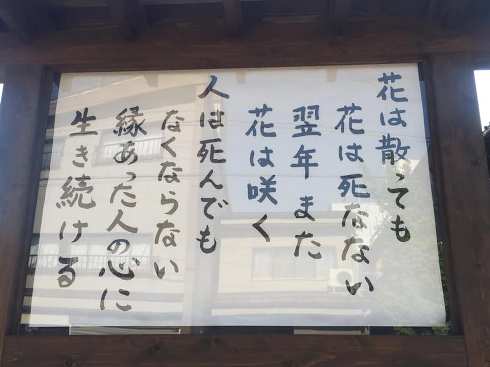 花は散っても
花は死なない
翌年また
花は咲く
人は死んでも
なくならない
縁あった人の心に
生き続ける